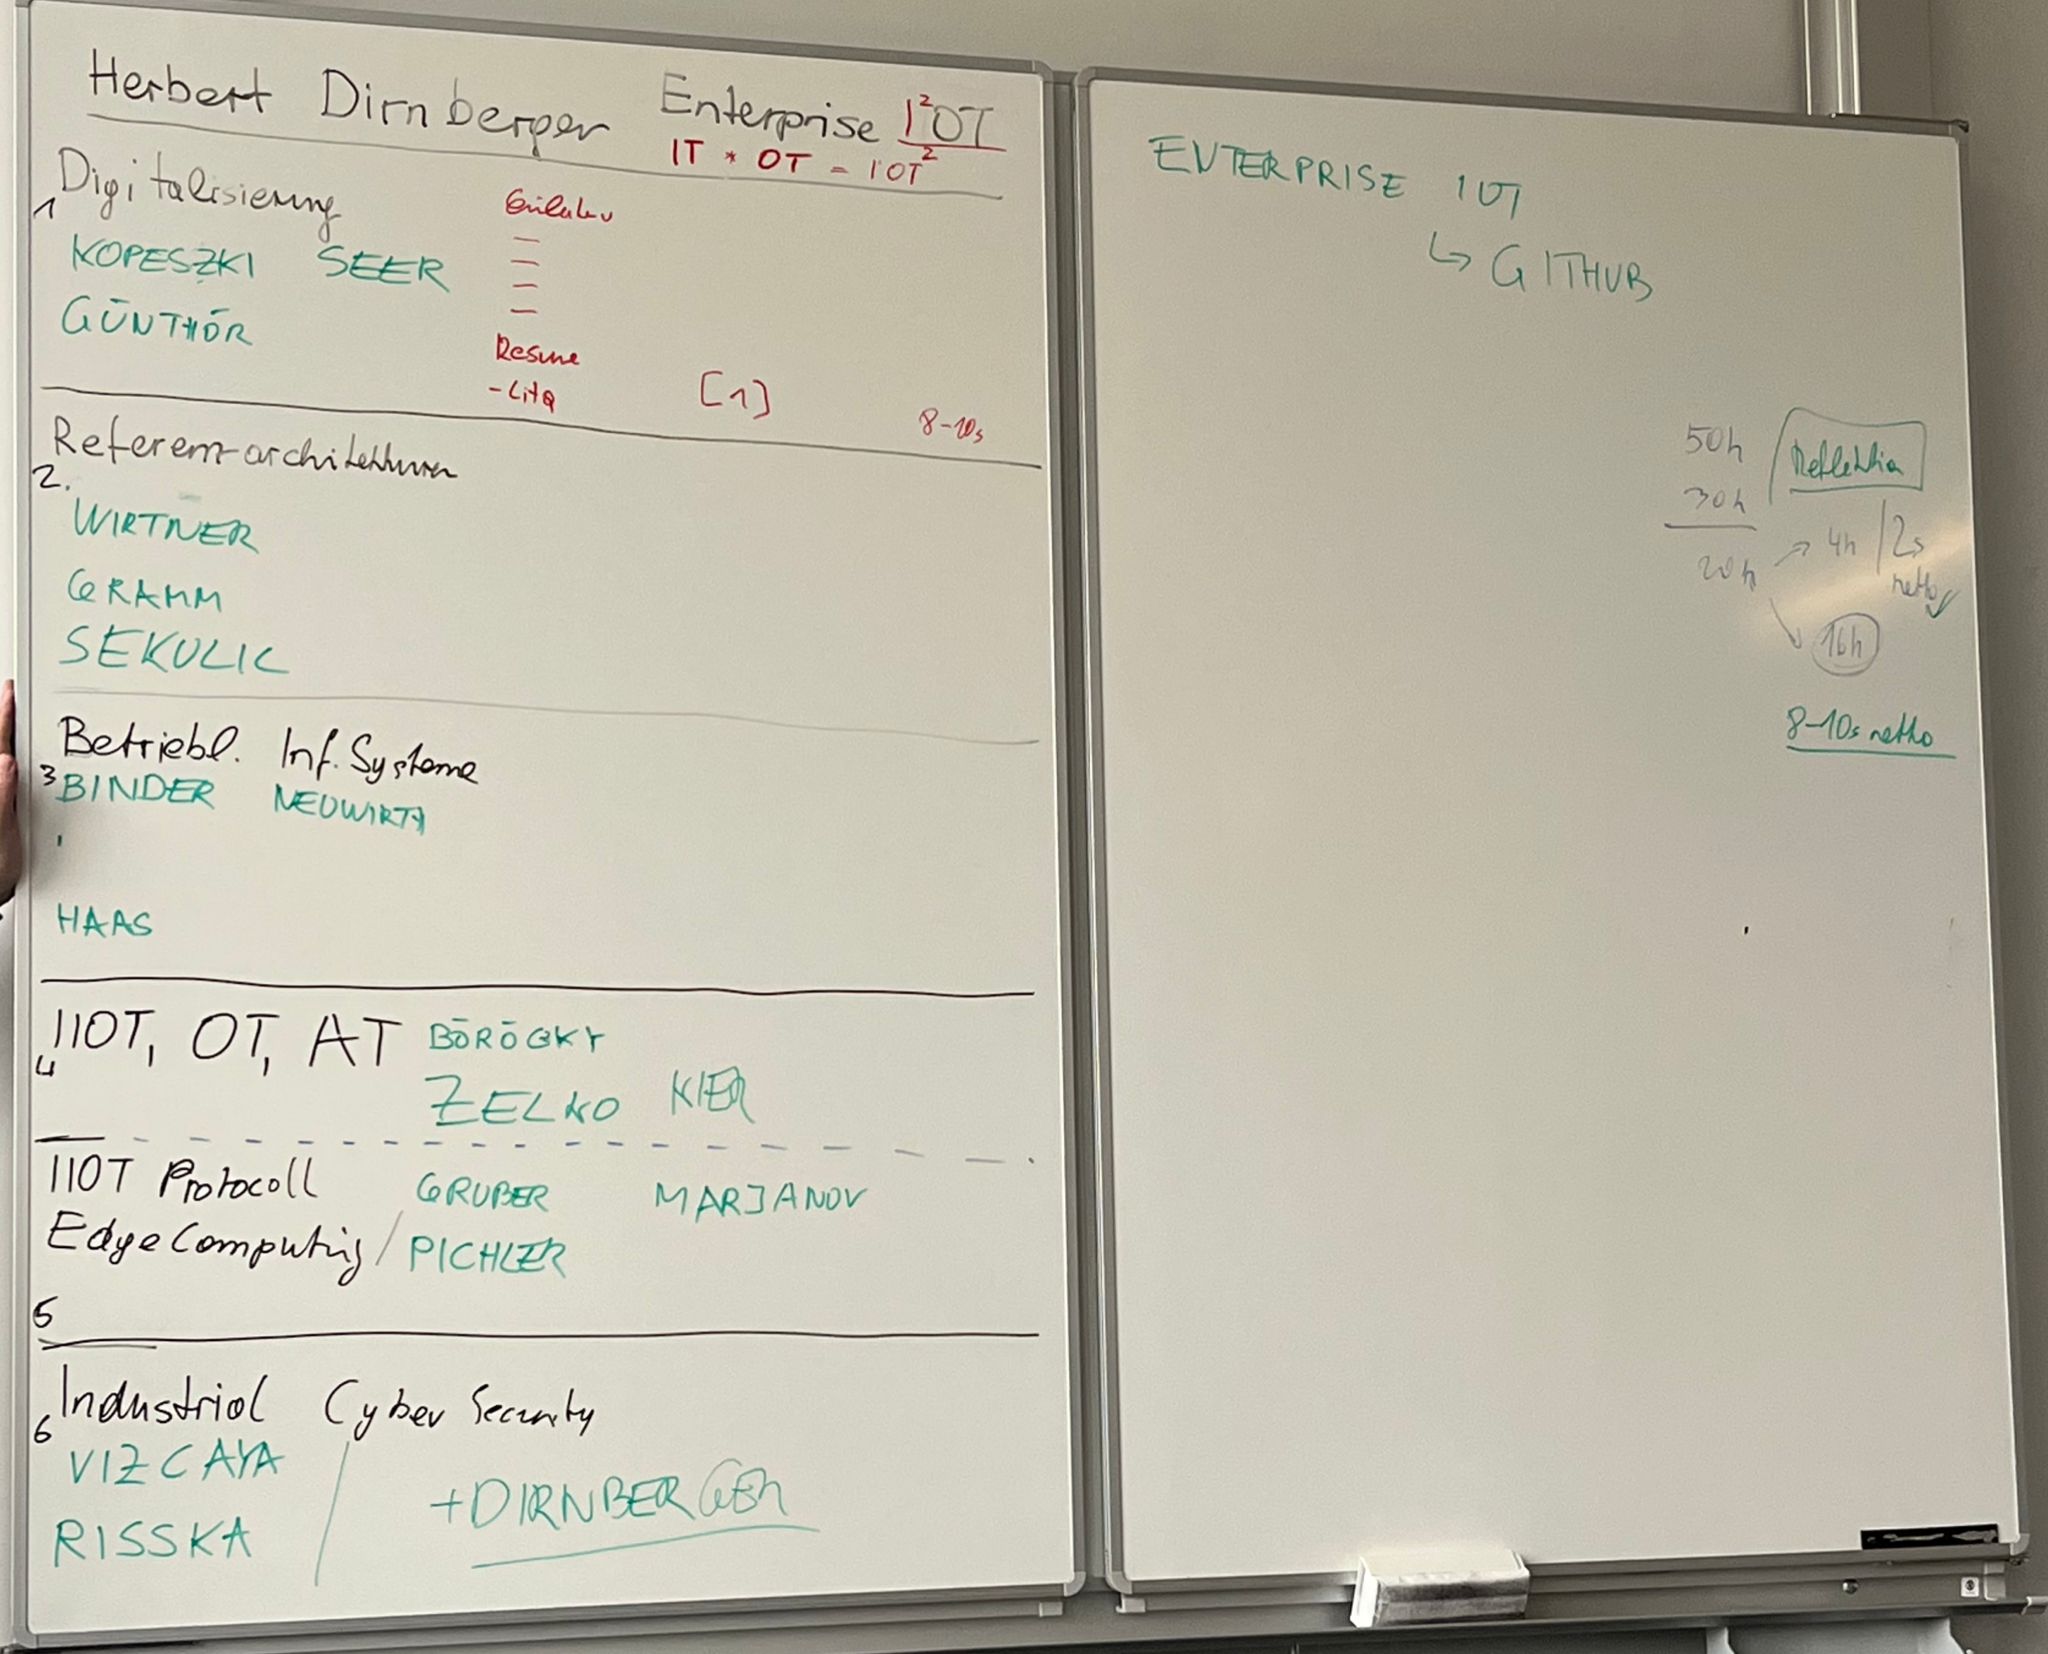 Herbert Dirnberger Enterprise I²OT
IT * OT = IOT²
1 Digitalisierung
KOPESZKI SEER
GÜNTHÖR
Einleitung
–
–
–
–
Resume
- Lita
[1]
8-10s
2. Referenzarchitekturen
WIRTNER
GRAMM
SEKULIC
Betriebl. Inf. Systeme
3 BINDER NEUWIRTH
HAAS
4 IIOT, OT, AT BÖRÖCKY
ZELKO KIER
IIOT Protocoll GRUBER MARJANOV
Edge Computing / PICHLER
5
Industrial Cyber Security
6
VIZCAYA
RISSKA
+DIRNBERGER
ENTERPRISE IOT
↳ GITHUB
50h Reflektion
30h
20h → 4h / 2s netto ✓
16h
8-10s netto